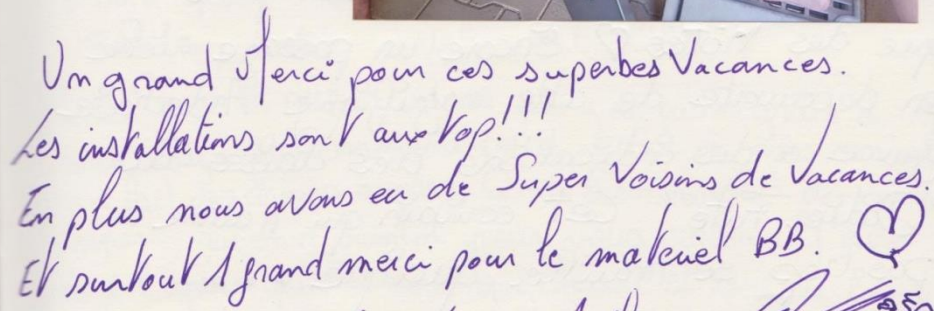 Un grand Merci pour ces superbes Vacances.
Les installations sont aux top!!!
En plus nous avons eu de Super Voisins de Vacances.
Et surtout 1 grand merci pour le materiel BB.